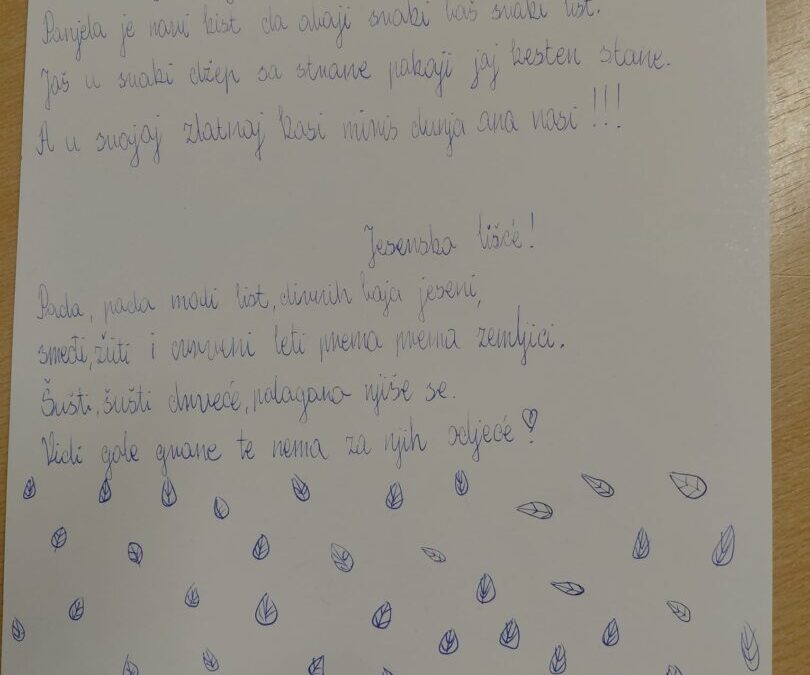 Ponjela je novi kist da oboji svaki baš svaki list.
Još u svaki džep sa strane pokoji joj kesten stane.
A u svojoj zlatnoj kosi miris dunja ona nosi!!!
Jesensko lišće!
Pada, pada modi list, divnih boja jeseni,
smeđi, žuti i crveni leti prema prema zemljici.
Šušti, šušti drveće, polagano njiše se.
Vidi gole grane te nema za njih odjeće